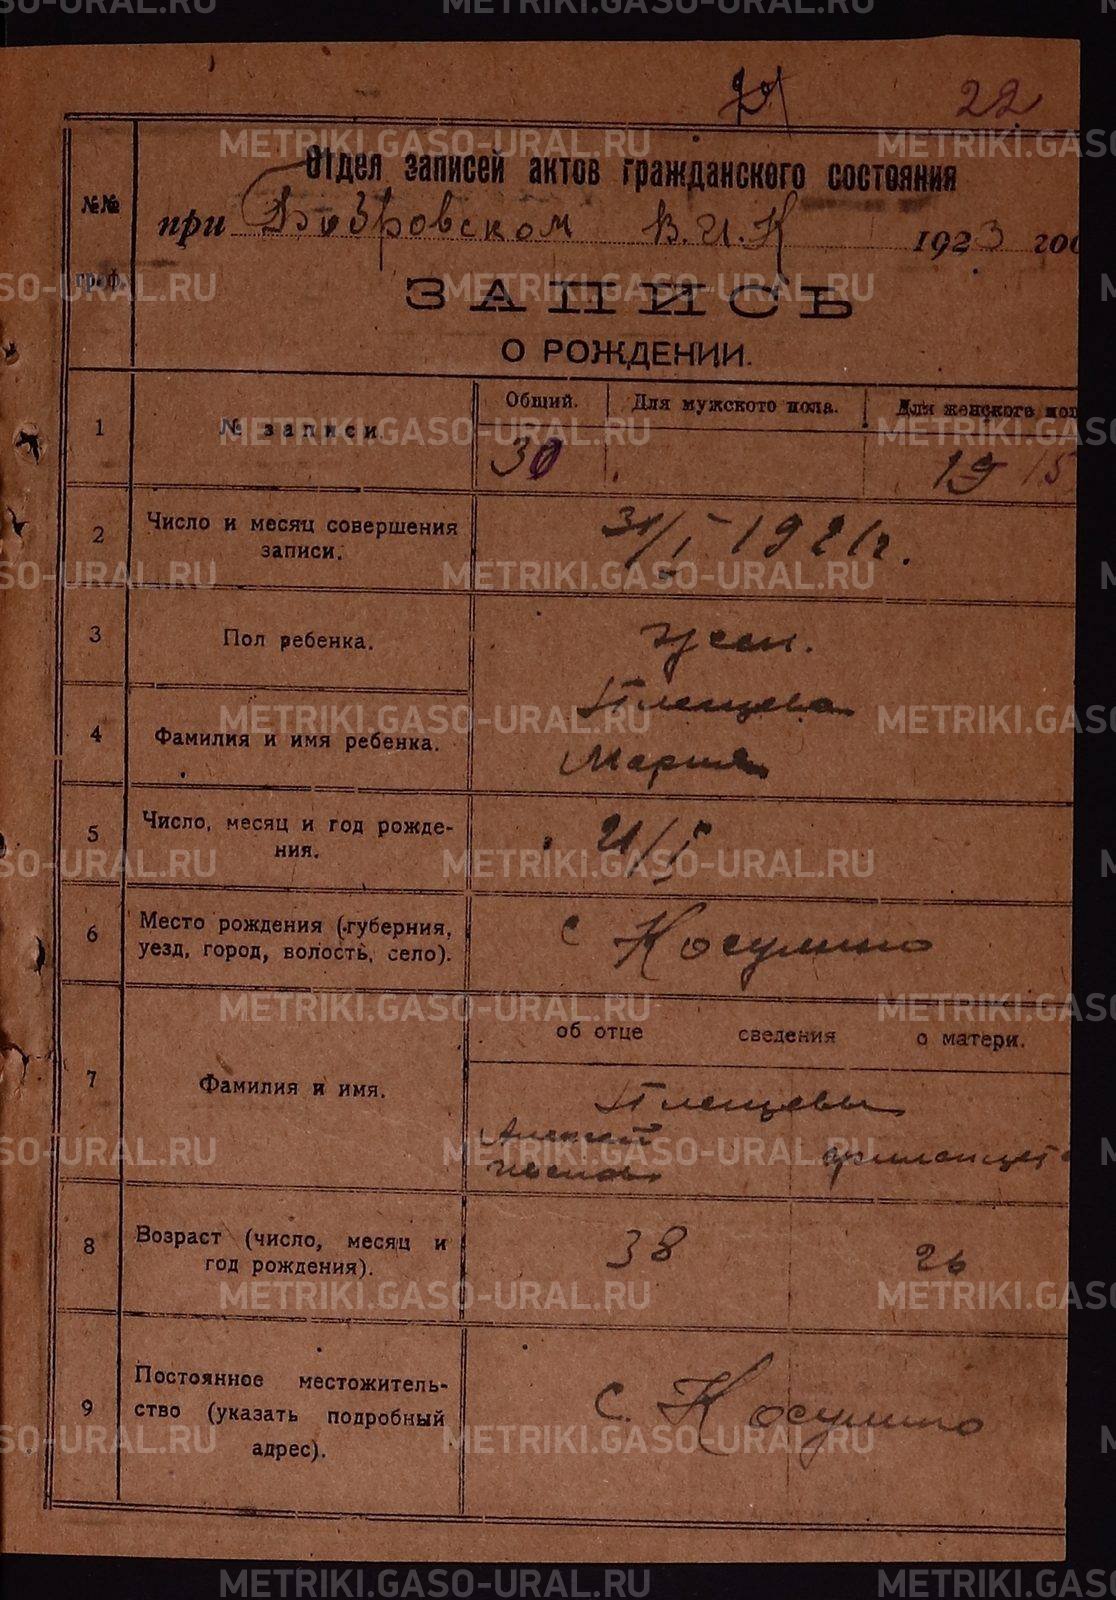 22
Отдел записей актов гражданского состояния
при Бобровском В.И.К 1923 год
№№ граф.
ЗАПИСЬ
О РОЖДЕНИИ.
1 № записи. Общий. Для мужского пола. Для женского пол
30 19 15
2 Число и месяц совершения записи. 31/I-192 г.
3 Пол ребенка. жен.
4 Фамилия и имя ребенка. Плещева
Мария
5 Число, месяц и год рождения. 21/I
6 Место рождения (губерния, уезд, город, волость, село). с Косулино
об отце сведения о матери.
7 Фамилия и имя. Плещевы
Алексей
8 Возраст (число, месяц и год рождения). 38 26
9 Постоянное местожительство (указать подробный адрес). с. Косулино
METRIKI.GASO-URAL.RU